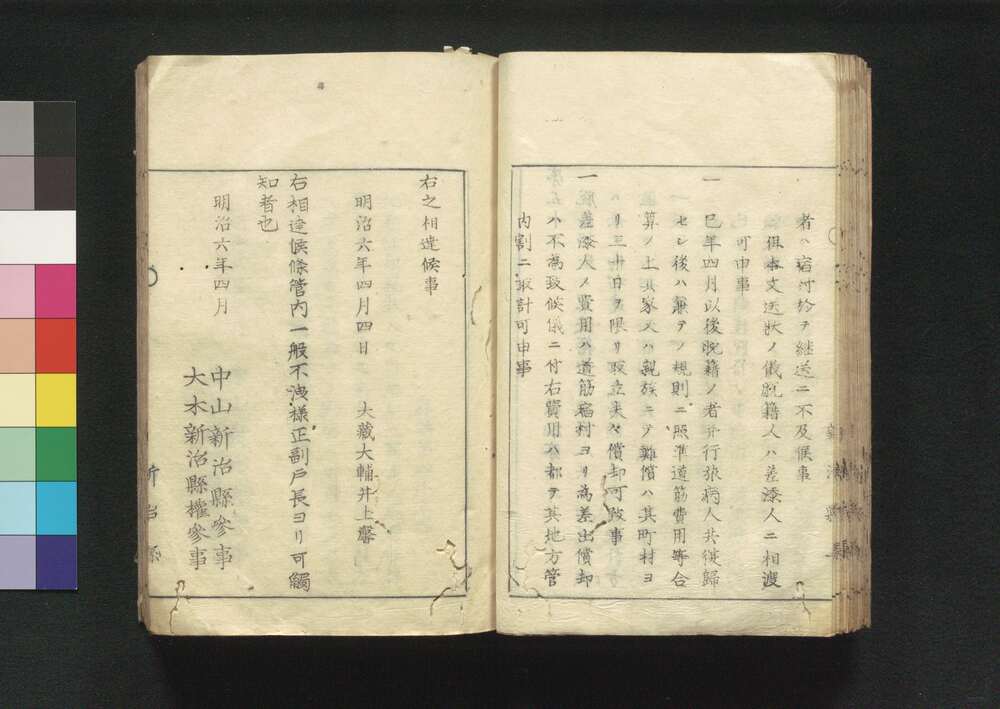 者ハ宿河於テ継送ニ不及候事
但本文送状ノ儀脱籍人ハ差添人ニ相渡
可申事
一 巳年四月以後脱籍ノ者并行旅病人共従帰
セシ後ハ兼テノ規則ニ照準道筋費用等合
算ノ上其家又ハ親族ニテ難償ハ其町村ヨ
リ三十日ヲ限リ取立夫々償却可致事
一 差添人ノ費用ハ道筋宿村ヨリ為差出償却
ハ不為致候儀ニ付右費用ハ都テ其地方管
内割ニ取計可申事
右之相達候事
明治六年四月四日 大蔵大輔井上馨
右相達候條管内一般不洩様正副戸長ヨリ可觸
知者也
明治六年四月
中山新治縣參事
大木新治縣權參事
新治縣